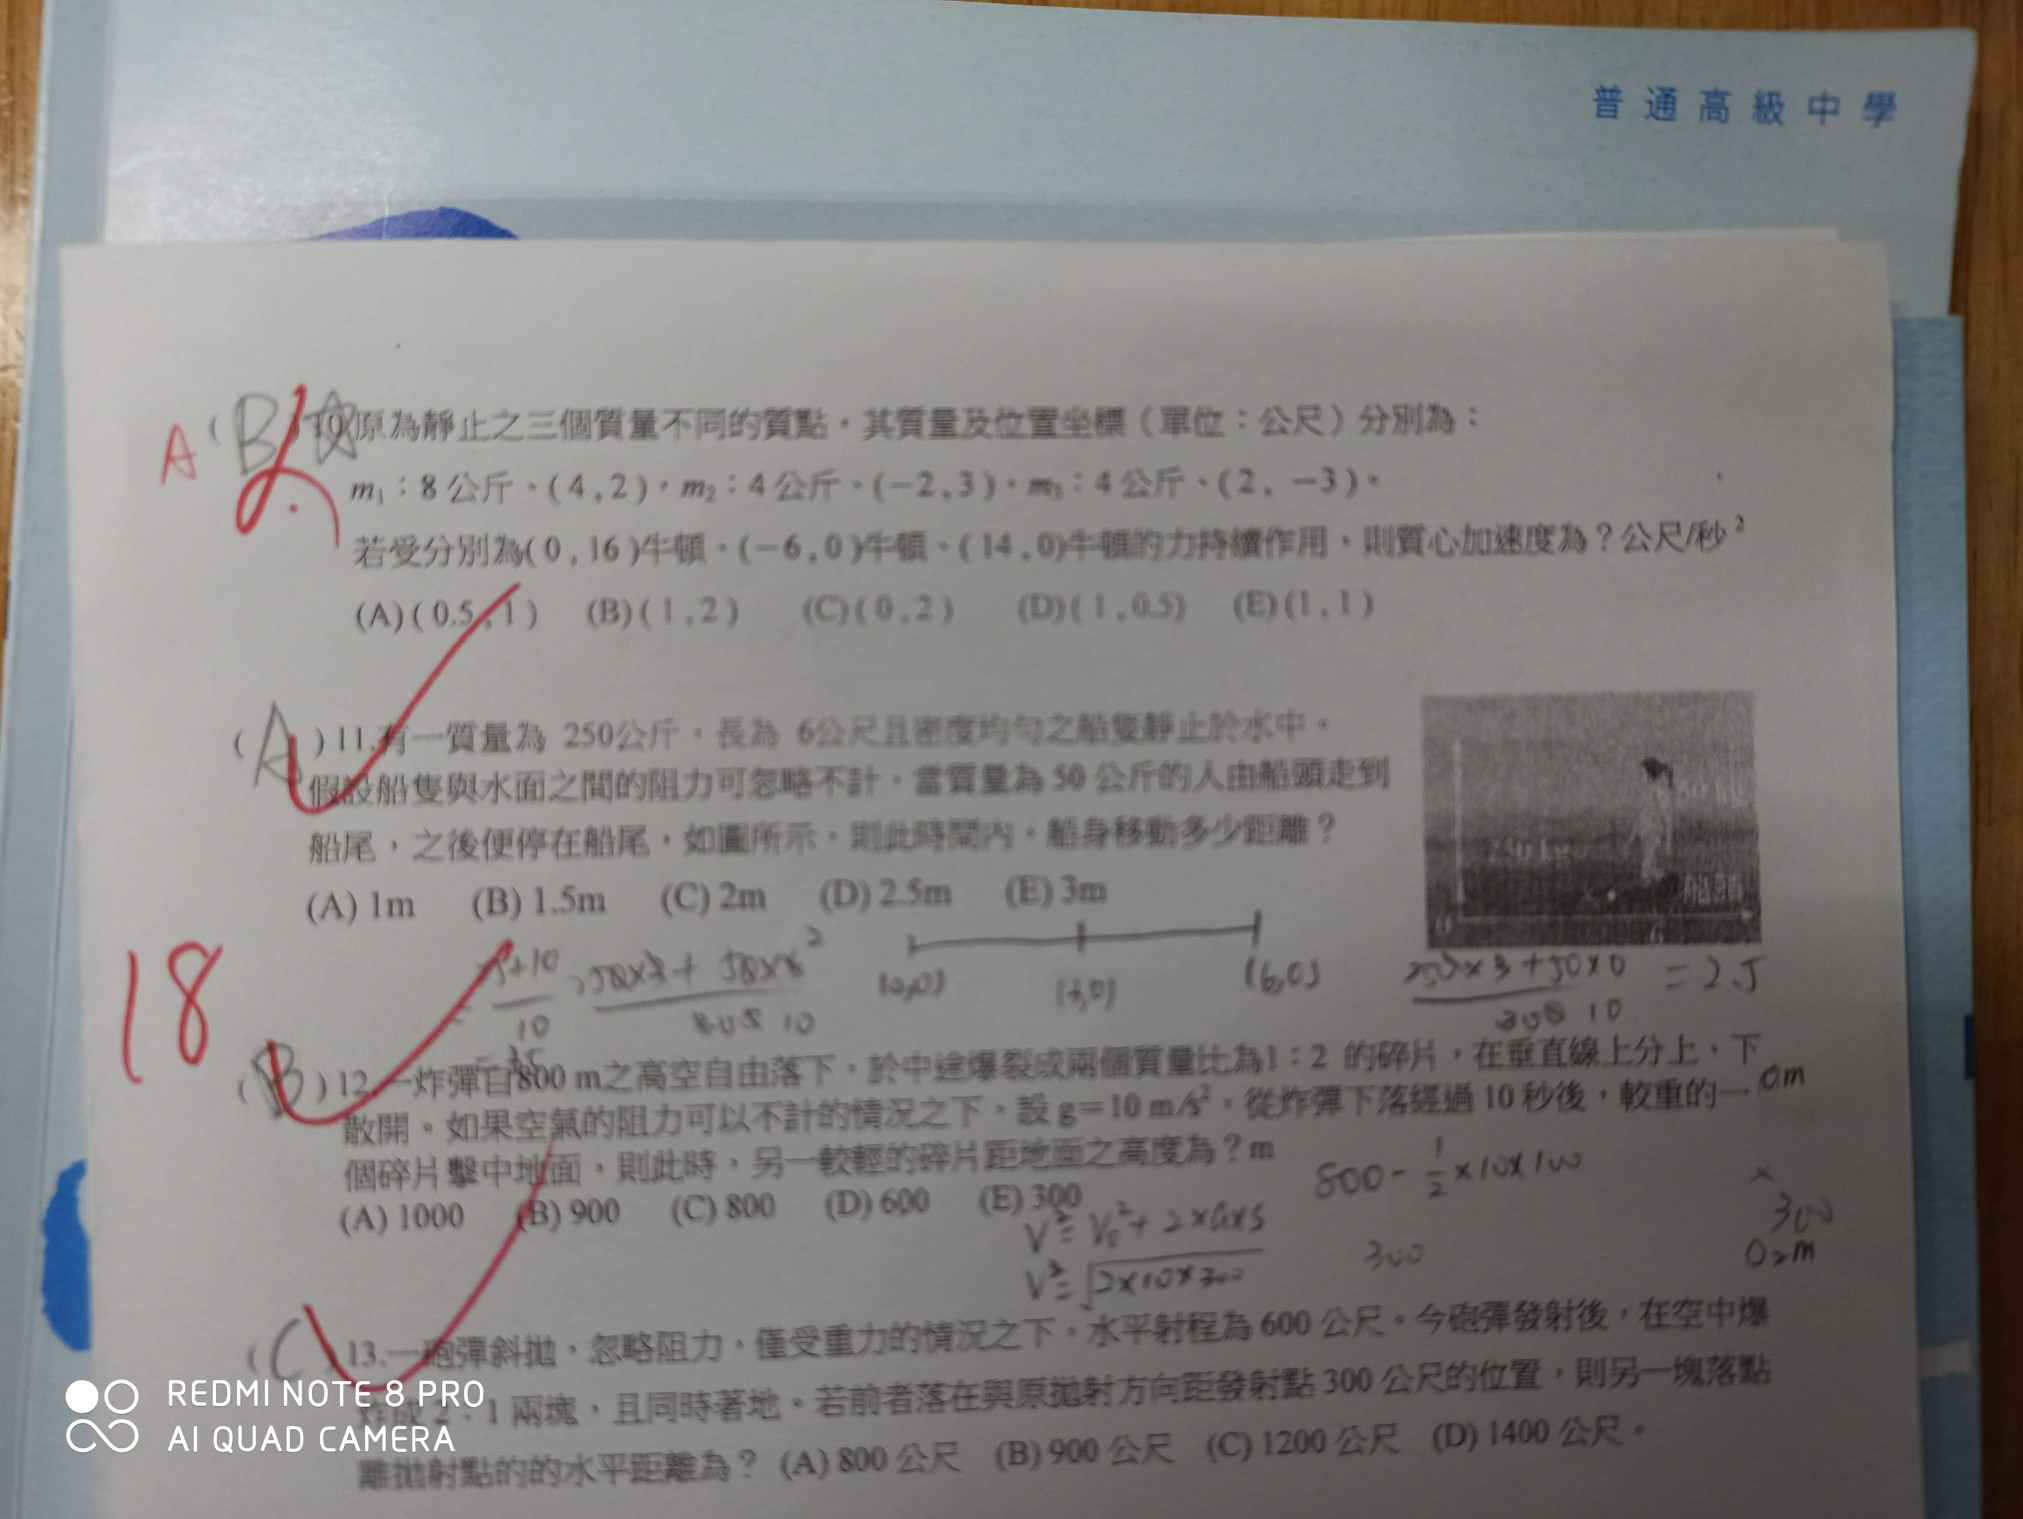 普通高級中學
A (B) 10.原為靜止之三個質量不同的質點，其質量及位置坐標（單位：公尺）分別為：
m₁：8公斤、(4,2)，m₂：4公斤、(−2,3)，m₃：4公斤、(2, −3)。
若受分別為(0,16)牛頓、(−6,0)牛頓、(14,0)牛頓的力持續作用，則質心加速度為？公尺/秒²
(A)(0.5,1) (B)(1,2) (C)(0,2) (D)(1,0.5) (E)(1,1)
(A) 11.有一質量為 250公斤，長為 6公尺且密度均勻之船隻靜止於水中。
假設船隻與水面之間的阻力可忽略不計，當質量為 50 公斤的人由船頭走到
船尾，之後便停在船尾，如圖所示，則此時間內，船身移動多少距離？
船頭
(A) 1m (B) 1.5m (C) 2m (D) 2.5m (E) 3m
18
(0,0) (3,0) (6,0)
250×3+50×0 = 2.5
(B) 12.一炸彈自800 m之高空自由落下，於中途爆裂成兩個質量比為1：2 的碎片，在垂直線上分上、下
散開。如果空氣的阻力可以不計的情況之下，設 g=10 m/s²，從炸彈下落經過 10 秒後，較重的一
個碎片擊中地面，則此時，另一較輕的碎片距地面之高度為？m
(A) 1000 (B) 900 (C) 800 (D) 600 (E) 300
800 - 1/2 ×10×100
300
300
(C) 13.一砲彈斜拋，忽略阻力，僅受重力的情況之下，水平射程為 600 公尺。今砲彈發射後，在空中爆
炸成 2：1 兩塊，且同時著地。若前者落在與原拋射方向距發射點 300 公尺的位置，則另一塊落點
離拋射點的的水平距離為？ (A) 800 公尺 (B) 900 公尺 (C) 1200 公尺 (D) 1400 公尺。
REDMI NOTE 8 PRO
AI QUAD CAMERA